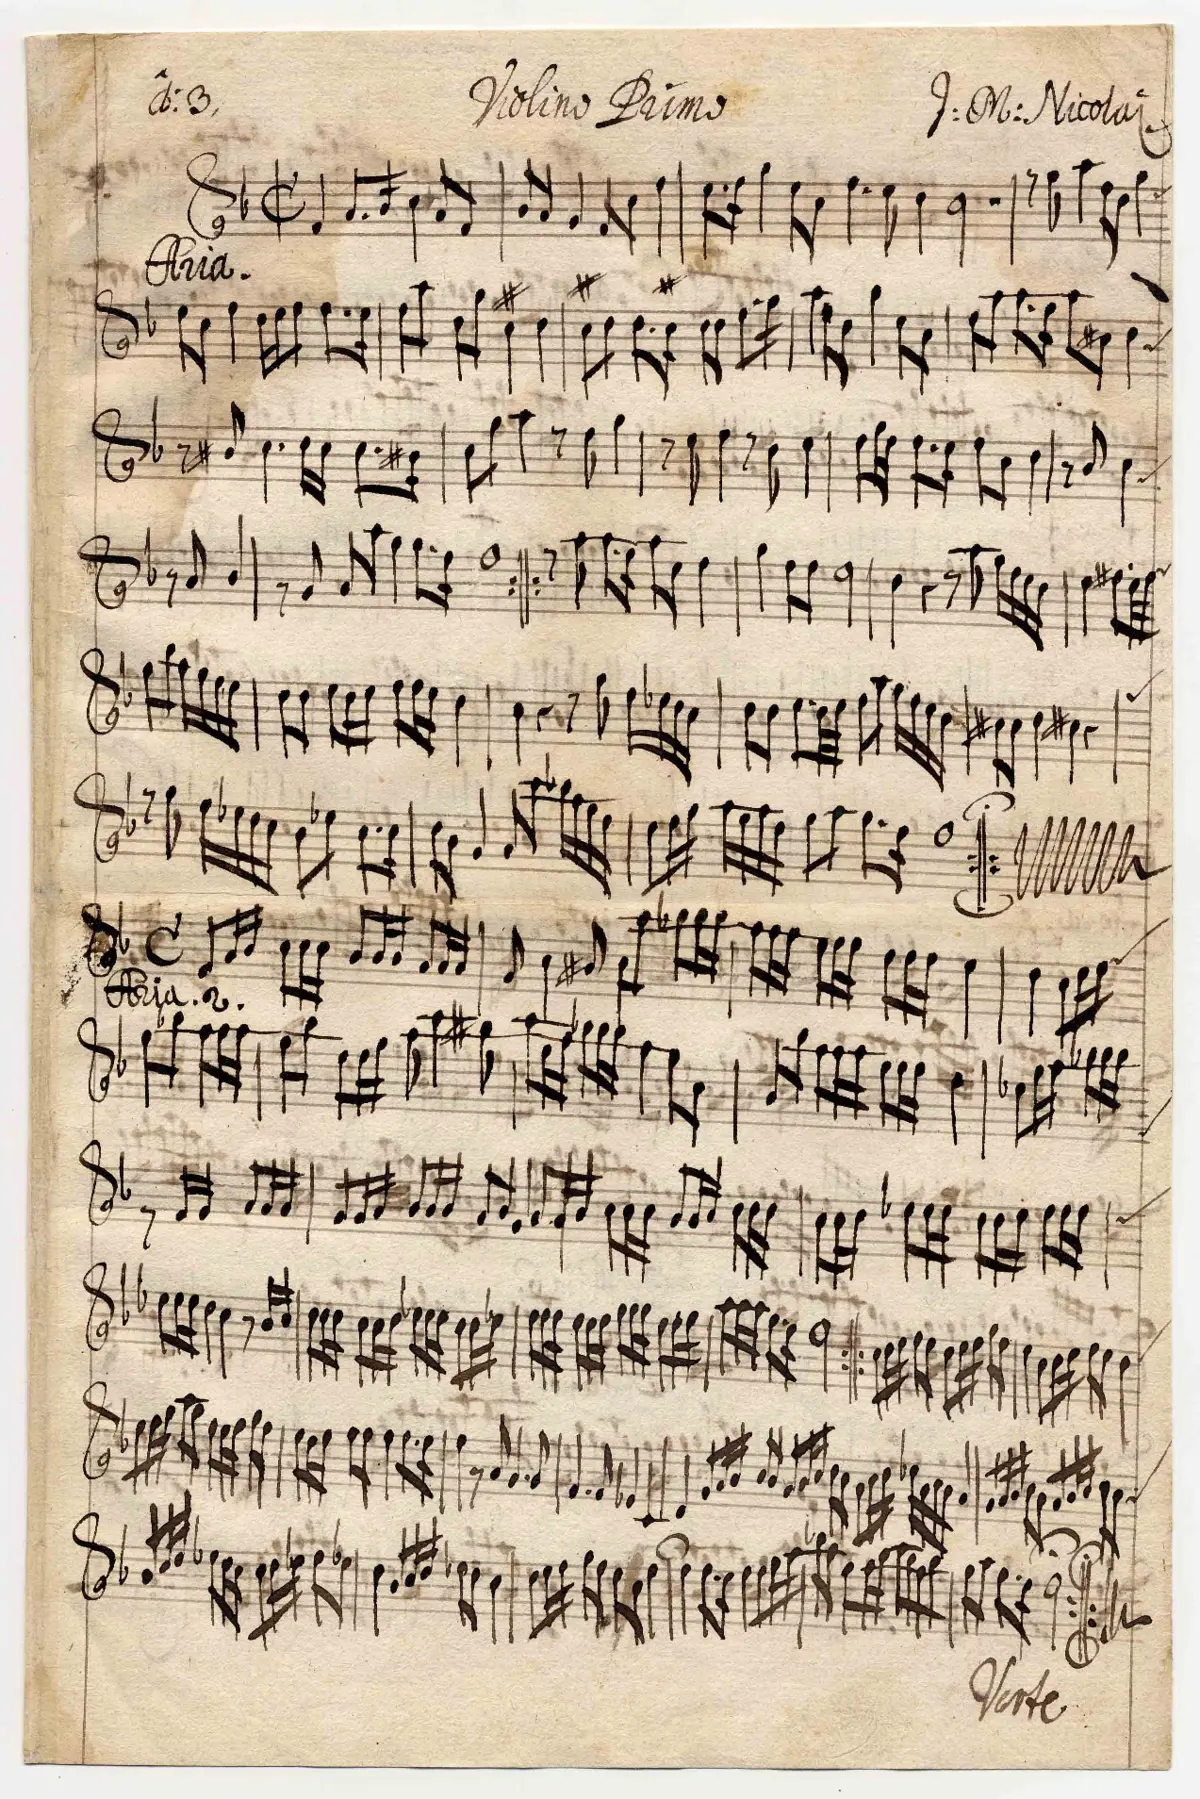 â: 3. Violino Primo J: M: Nicolai
Aria.
Aria. 2.
Verte